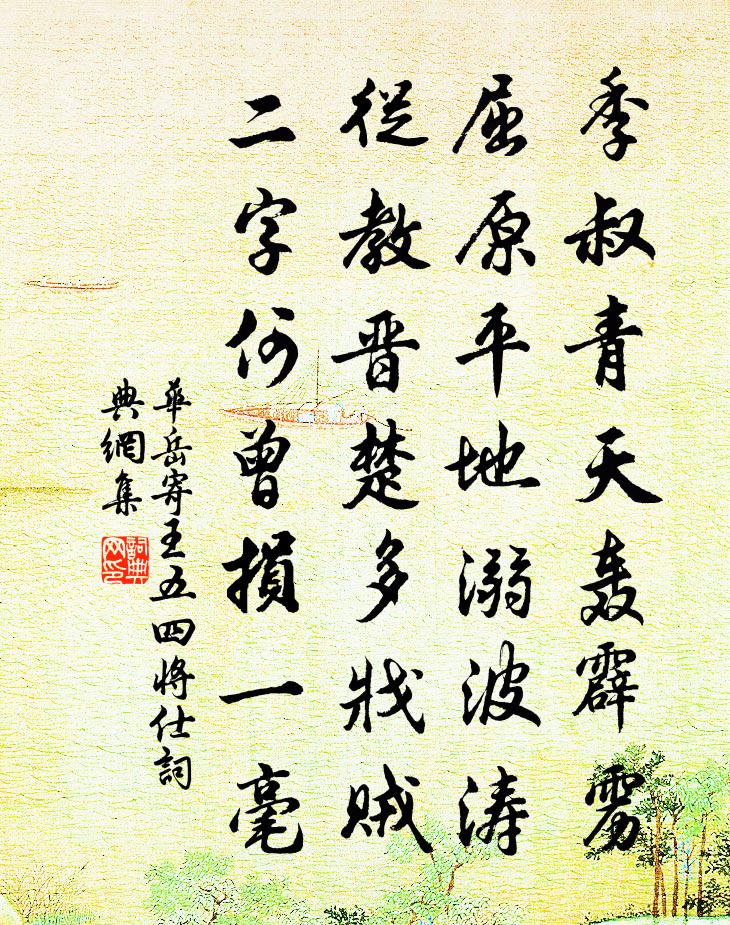 季叔青天轰霹雳
屈原平地溺波涛
從教晋楚多戕贼
二字何曾損一毫
華岳寄王五四將仕詞
典網集
詞典
网印